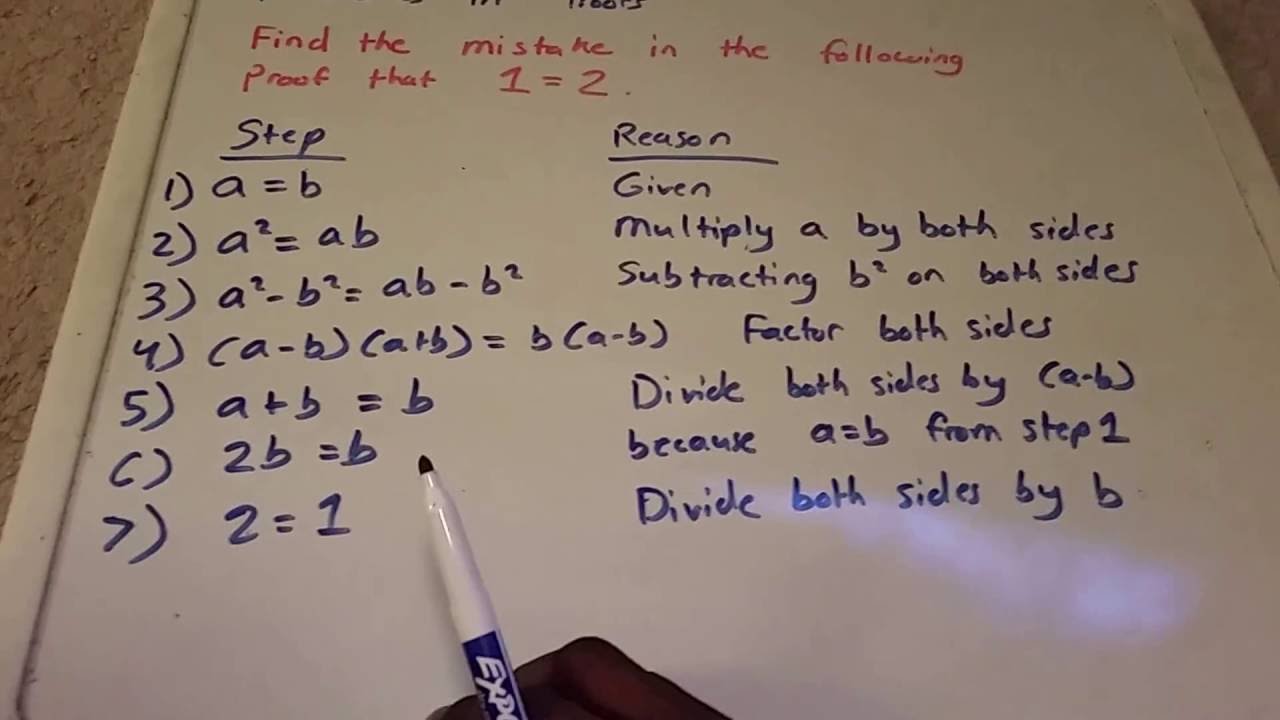 in Proofs
Find the mistake in the following
Proof that 1 = 2.
Step Reason
1) a = b Given
2) a² = ab Multiply a by both sides
3) a² - b² = ab - b² Subtracting b² on both sides
4) (a-b)(a+b) = b(a-b) Factor both sides
5) a + b = b Divide both sides by (a-b)
6) 2b = b because a=b from step 1
7) 2 = 1 Divide both sides by b
EXPO